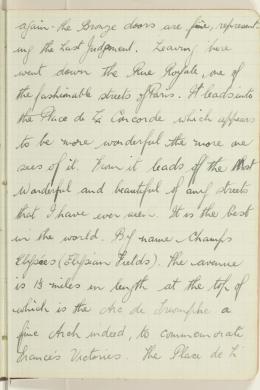 again - the Bronze doors are fine, represent-
ing the Last Judgement. Leaving here
went down the Rue Royale, one of
the fashionable streets of Paris. It leads into
the Place de La Concorde which appears
to be more wonderful the more one
sees of it. From it leads off the Most
wonderful and beautiful of any streets
that I have ever seen. It is the best
in the world. By name - Champs
Elysées (Elysian Fields). The avenue
is 1⅓ miles in length at the top of
which is the Arc de Triomphe a
fine Arch indeed, to commemorate
France's Victories. The Place de L'